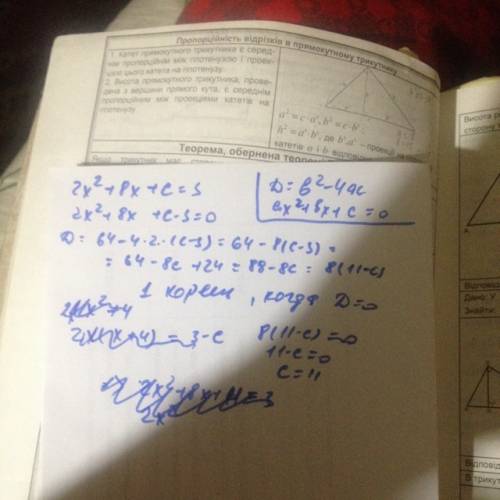 Пропорційність відрізків в прямокутному трикутнику
1. Катет прямокутного трикутника є серед-
нім пропорційним між гіпотенузою і проек-
цією цього катета на гіпотенузу.
2. Висота прямокутного трикутника, прове-
дена з вершини прямого кута, є середнім
пропорційним між проекціями катетів на
гіпотенузу
a² = c·a', b² = c·b'
h² = a'·b', де b', a' – проекції на
катетів a і b відповід
Теорема, обернена
Якщо трикутник має
2x²+8x+c=3
2x²+8x+c-3=0
D=b²-4ac
ax²+bx+c=0
D = 64-4·2·(c-3) = 64-8(c-3) =
= 64-8c+24 = 88-8c = 8(11-c)
1 корень, когда D=0
2x(x+4) = 3-c
8(11-c)=0
11-c=0
c=11
2x²+8x+11=3
2x²
Висота
Відповідь
Дано:
Знайти:
Відповід
В трикут